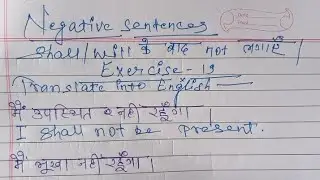 Negative sentences
shall/will के बाद not लगाएँ।
Exercise - 19
Translate into English —
मैं उपस्थित नहीं रहूँगा।
I shall not be present.
मैं भूखा नहीं रहूँगा।